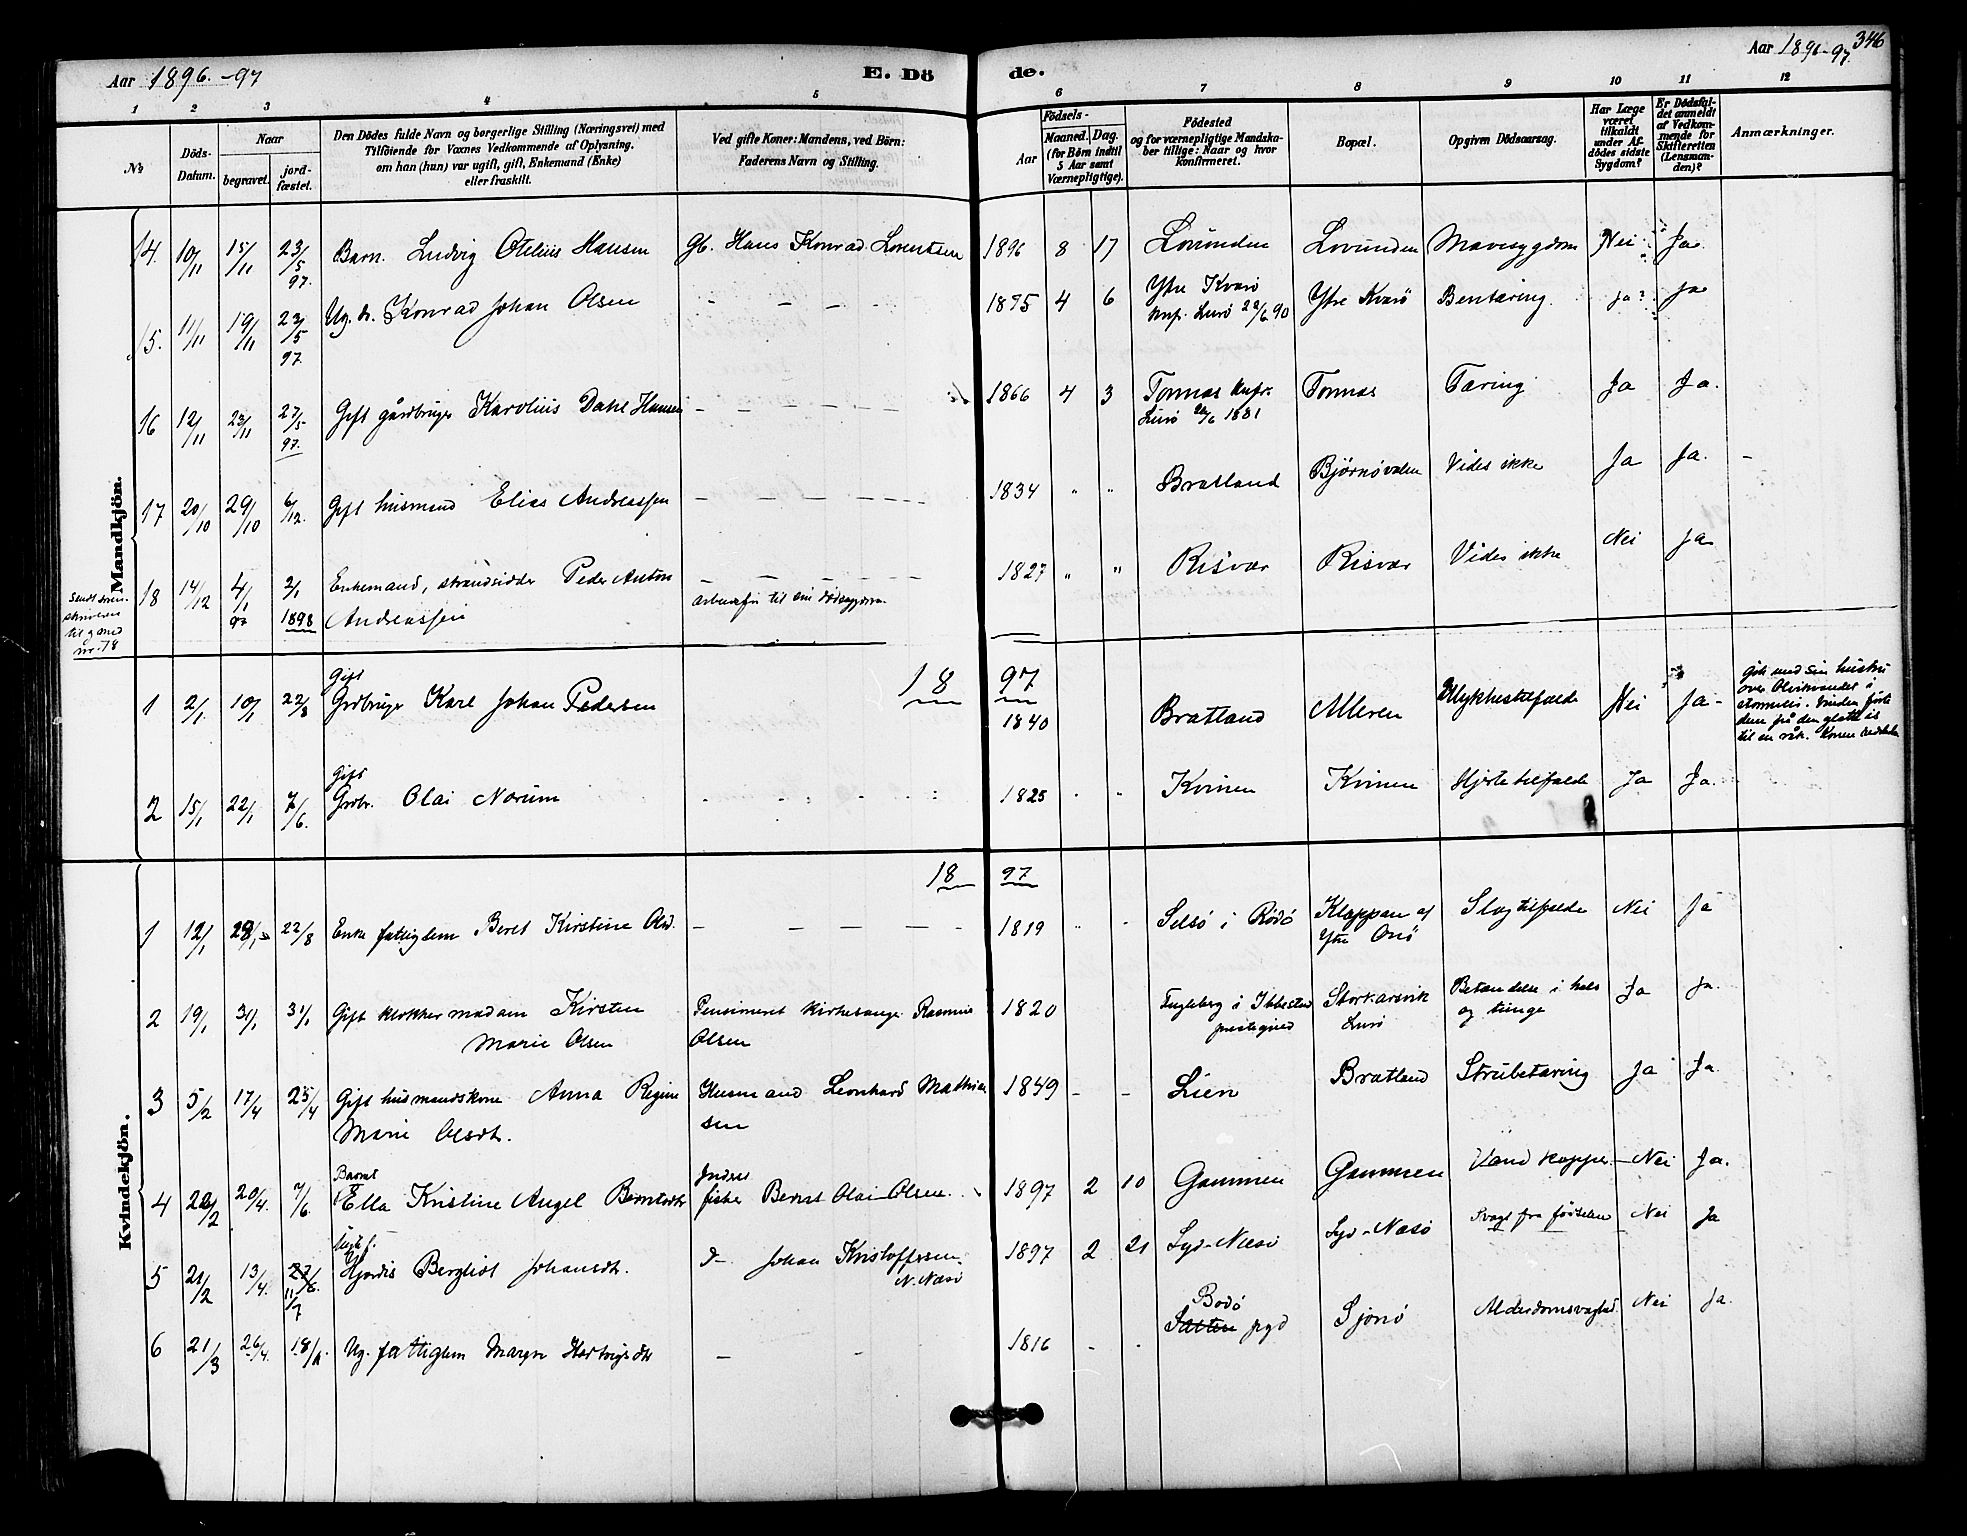 Aar 1896.-97
E. Dö
de.
Aar 1896-97. 346
1 2 3 4 5 6 7 8 9 10 11 12
№
Döds-Datum.
Naar begravet. jordfæstet.
Den Dödes fulde Navn og borgerlige Stilling (Næringsvei) med
Tilföiende for Voxnes Vedkommende af Oplysning,
om han (hun) var ugift, gift, Enkemand (Enke)
eller fraskilt.
Ved gifte Koner: Mandens, ved Börn:
Faderens Navn og Stilling.
Födsels-
Aar Maaned. Dag.
(for Börn indtil 5 Aar samt Værnepligtige).
Födested
og for værnepligtige Mandskaber tillige: Naar og hvor konfirmeret.
Bopæl.
Opgiven Dödsaarsag.
Har Læge været tilkaldt under Afdödes sidste Sygdom?
Er Dödsfaldet anmeldt af Vedkommende for Skifteretten (Lensmanden)?
Anmærkninger.
Mandkjön.
14. 10/11 15/11 23/5 97. Barn. Ludvig Otelius Hansen Gb. Hans Konrad Lorentsen 1896 8 17 Lovunden Lovunden Mavesygdom Nei Ja.
15. 11/11 19/11 23/5 97. Ug. Konrad Johan Olsen - - - - 1875 4 6 Ytre Kvarö Ytre Kvarö Bentæring. Ja Ja
knf. Lurö 22/6 90
16 12/11 23/11 27/5 97. Gift gårdbruger Karolius Dahl Hansen - - - - - 1866 4 3 Tonnes Tonnes Tæring Ja Ja.
Lurö 26/6 1881
17 20/10 29/10 6/12. Gift husmand Elias Andreassen - - - - - 1834 " " Bratland Björnövalen Vides ikke Ja Ja. -
18 14/12 4/1 97 2/1 1898 Enkemand, strandsidder Peder Anton - - - - - 1827 " " Risvær Risvær Vides ikke Nei Ja
Andreassen
til sin
nr. 78
18 97
1 2/1 10/1 22/8 Gift
Grdbruger Karl Johan Pedersen 1840 Bratland Alteren Ulykkestilfælde Nei Ja -
Gik med sin hustru
over Olvikvandet i
stormveir. Vinden förte
dem på den glatte is
til en råk. Konen
2 15/1 22/1 7/6. Gift
Grdbr. Olai Norum 1825 Kvinen Kvinen Hjertetilfælde Ja Ja.
Kvindekjön.
18 97
1 12/1 28/1 22/8 Enke fattiglem Beret Kirstine Olsd. - - - - - 1819 " - Selsö i Rödö Klæppan af Slagtilfælde Nei Ja
Ytre Onö
2 19/1 31/1 31/1 Gift klokkermadam Kirsten Pensioneret kirkesanger Rasmus 1820 i Ibbestad Storkarsvik Betændelse i hals Ja Ja.
Marie Olsen Olsen præstegjeld Lurö og tunge
3 5/2 17/4 25/4 Gift husmandskone Anna Regine Husmand Leonhard Mathias 1849 - - Lien Bratland Strubetæring Ja Ja.
Marie Olsdt. sen
4 22/2 20/4. 7/6. Barnet
Ella Kristine Angel Berntsdtr fisker Bernt Olai Olsen. 1897 2 10 Gammen Gammen Vand kopper - Nei Ja.
5 21/2 13/4. 27/6. 11/7 Hjordis Bergliot Johansdt. d- Johan Kristoffersen. 1897 2 21 Syd-Næsö Syd-Næsö Svagt fra födselen Nei Ja
N. Næsö
6 21/3 26/4. 18/ Ug. fattiglem Hartvigsdtr - - 1816 - - Bodö pgd Sjonö Alderdomssvaghed. Nei Ja.